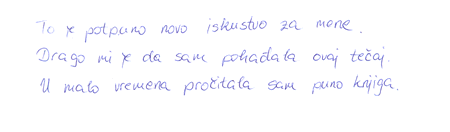 To je potpuno novo iskustvo za mene.
Drago mi je da sam pohađala ovaj tečaj.
U malo vremena pročitala sam puno knjiga.